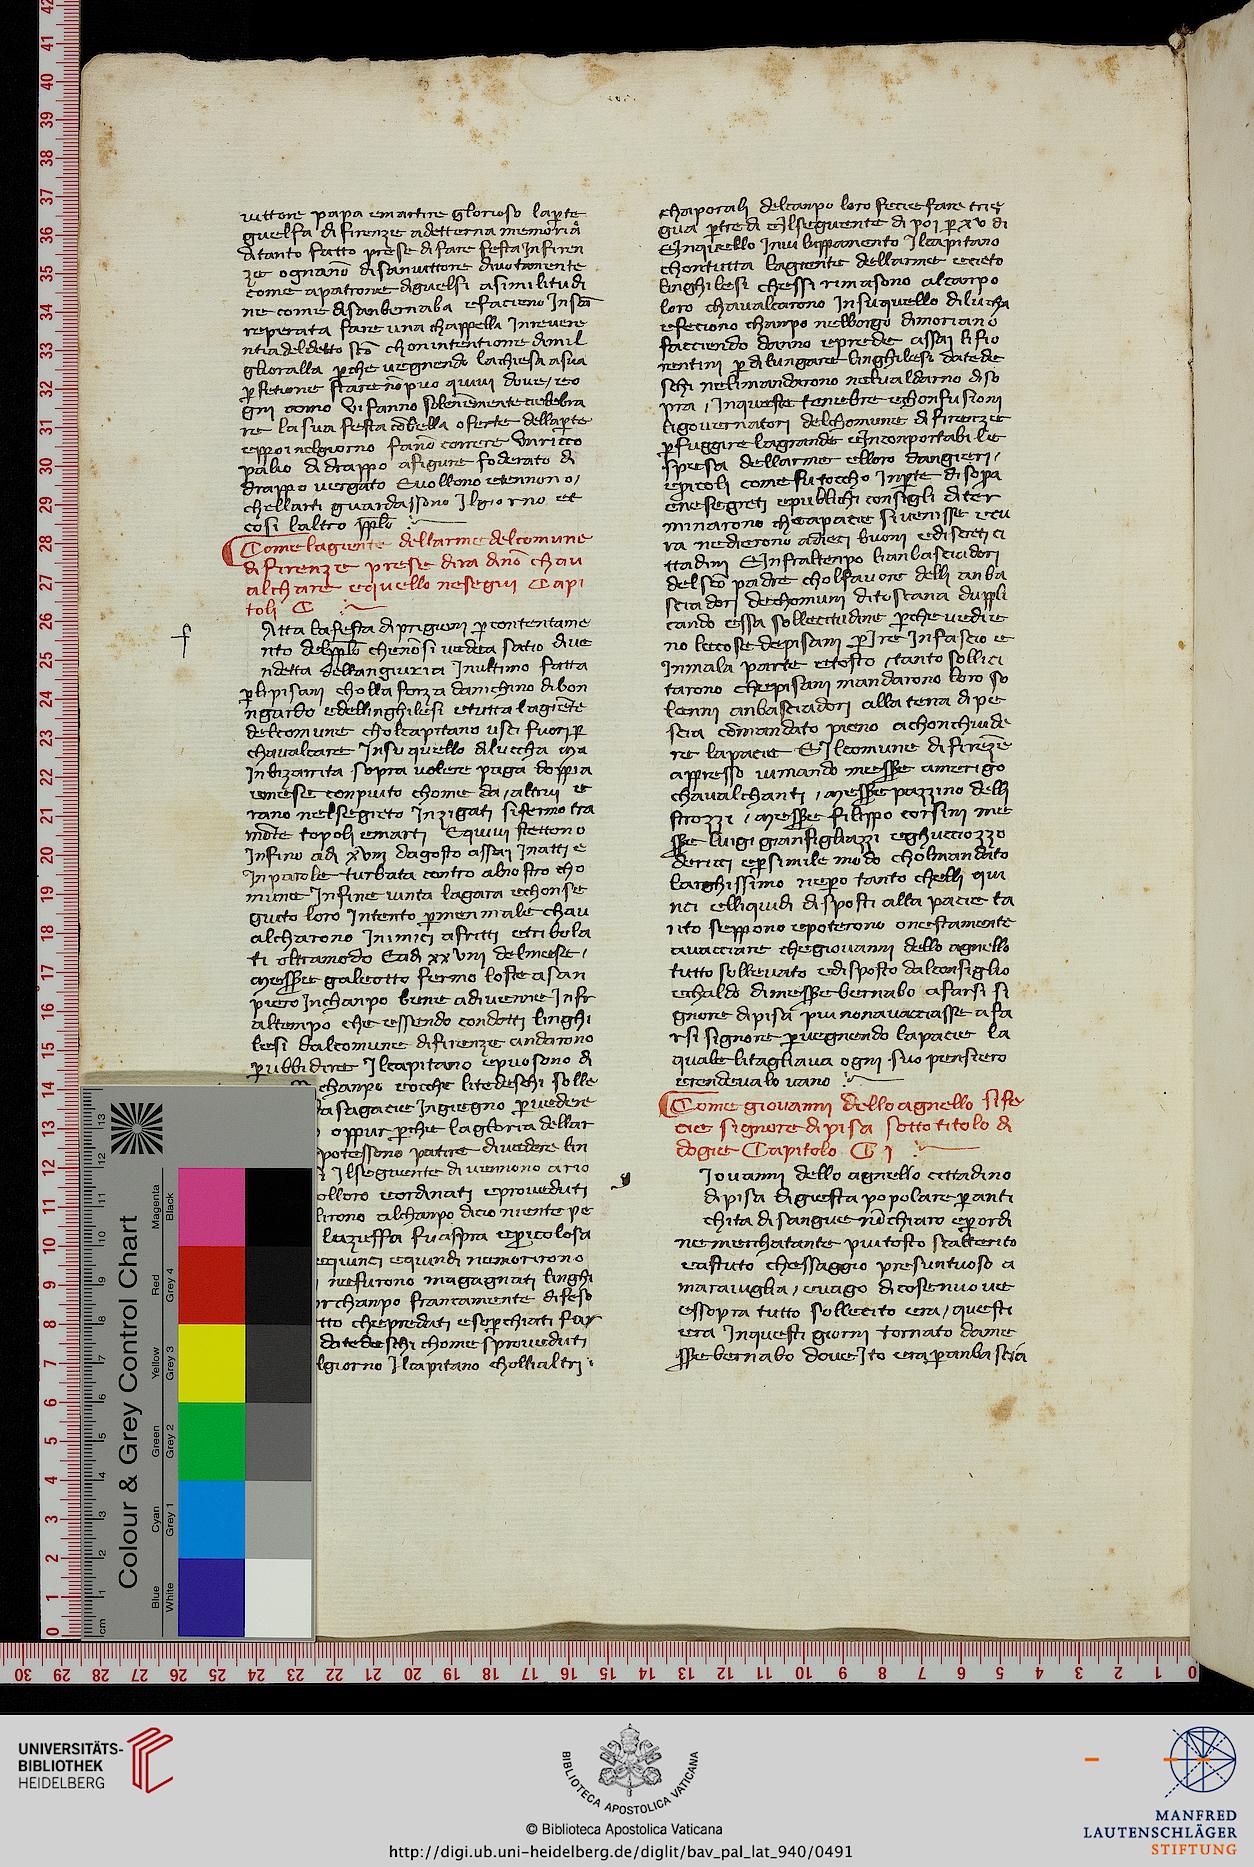 vittore papa emartire glorioso laparte
guelfa di firenze adetterna memoria
ditanto fatto prese difare festa Infiren
ze ogniano disanvittore divotamente
come apatrone diguelfi asimilitudi
ne come disanbernaba efacieno Insca
reperata fare una chappella Inrevere
ntia deldetto sco chonintentione dimil
glioralla perche vegnendo lachiesa asua
perfetione stare no puo quivi dove, eo
gni anno vi fanno solenemente cielebra
re la sua festa cobella oferte dellaparte
eppoi nelgiorno fano correre unricco
palio di drappo afigure foderato di
drappo vergato Evollono etennono,
chellarti guardassono Ilgiorno et
cosi laltro pplo
Come lagiente dellarme delcomune
di Firenze prese dira dino chav
alchare equello nesegui Capi
tolj C
f
Atta lafesta di prigioni per contentame
nto delpplo chenonsi vedea satio dive
ndetta dellangiuria Inultimo fatta
perlipisani cholla forza danichino dibon
ngardo edellinghilesi etutta lagiete
delcomune cholcapitano usci fuori per
chavalcare Insu quello diluccha ma
Inbizarrita sopra volere paga doppia
emese conpiuto chome da, altrui e
rano nelsegreto Inzigati sifermo tra
mote topoli emarti Equivi stettono
Infino adi xviij dagosto assai Inatti e
Inparole turbata contro alnostro cho
mune Infine vinta lagara echonse
guito loro Intento permen male chav
alcharono Inimici afritti etribola
ti oltramodo Eadi xxviiij delmese,
messere galeotto fermo loste asan
piero Inchanpo bene adivenne Infr
altempo che essendo condotti linghi
lesi dalcomune difirenze andarono
perubbidire Ilcapitano epuosono di
chanpo ecoche litedeschi solle
a sagacie Ingiegno pervedere
oppur perche lagloria dellar
potessono patire divedere lin
Ilseguente divennono ario
olloro eordinati eproveduti
lirono alchanpo dicio niente pe
lazuffa fuaspra epericolosa
equinci equindi nemorirono
nefurono magagnati linghi
rchanpo francamente difeso
tto chepredati esoperchiati fur
da tedeschi chome sproveduti
lgiorno Ilcapitano chollialtri
chaporali delcanpo loro feciefare trie
gua pertre di eIlseguente di poi per xv di
EInquello Inviluppamento Ilcapitano
chontutta lagiente dellarme ecieto
linghilesi chessi rimasono alcanpo
loro chavalcarono Insuquello di lucha
efeciono chanpo nelborgo dimoriano
facciendo danno eprede assai lifio
rentini per dilungare linghilesi datede
schi nelimandarono nelvaldarno diso
pra, Inqueste tenebre echonfusioni
ligovernatori delchomune di Firenze
perfuggire lagrande eInconportabile
spesa dellarme elloro dangieri,
epericoli come futoccho Inparte disopa
enesegreti epubblichi consigli diter
minarono chepacie sivenisse ecu
ra nedierono adieci buoni ediscreti ci
ttadini EInfraltenpo lianbasciadori
delsco padre cholfavore delli anba
sciadori dechomuni ditoscana duppli
cando essa sollecitudine perche vedie
no lecose depisani perIre Infascio e
Inmala parte etosto, tanto sollici
tarono chepisani mandarono loro so
lenni anbasciadori alla terra dipe
scia comandato pieno achonchiude
re lapacie EIlcomune difireze
appresso vimando messere amerigo
chavalchanti, messere pazzino delli
strozzi, messere filippo corsini me
ssere luigi gianfigliazzi eghucciozzo
dericci epersimile modo cholmandato
larghissimo nepero tanto chelli qui
nci elliquidi disposti alla pacie ta
nto seppono epoterono onestamente
avacciare chegiovanni dello agnello
tutto sollevato edisposto dalconsiglio
echaldo dimessere bernabo afarsi si
gnore dipisa piu nonavacciasse afa
rsi signore pervegnendo lapacie la
quale litagliava ogni suo pensiero
erendevalo vano
Come giovanni dello agnello sife
cie signore dipisa sotto titolo di
dogie Capitolo C j
g
Iovanni dello agnello cittadino
dipisa digiesta popolare peranti
chita disangue no chiaro eperordi
ne merchatante piutosto scalterito
eastuto chessaggio presuntuoso a
maraviglia, evago dicosenuove
essopra tutto sollecito era, questi
era Inquesti giorni tornato dame
ssere bernabo doveIto era peranbascia
Colour & Grey Control Chart
Magenta
Black
Red
Grey 4
Yellow
Grey 3
Green
Grey 2
Cyan
Grey 1
Blue
White
cm
UNIVERSITÄTS-
BIBLIOTHEK
HEIDELBERG
BIBLIOTECA APOSTOLICA VATICANA
© Biblioteca Apostolica Vaticana
http://digi.ub.uni-heidelberg.de/diglit/bav_pal_lat_940/0491
MANFRED
LAUTENSCHLÄGER
STIFTUNG